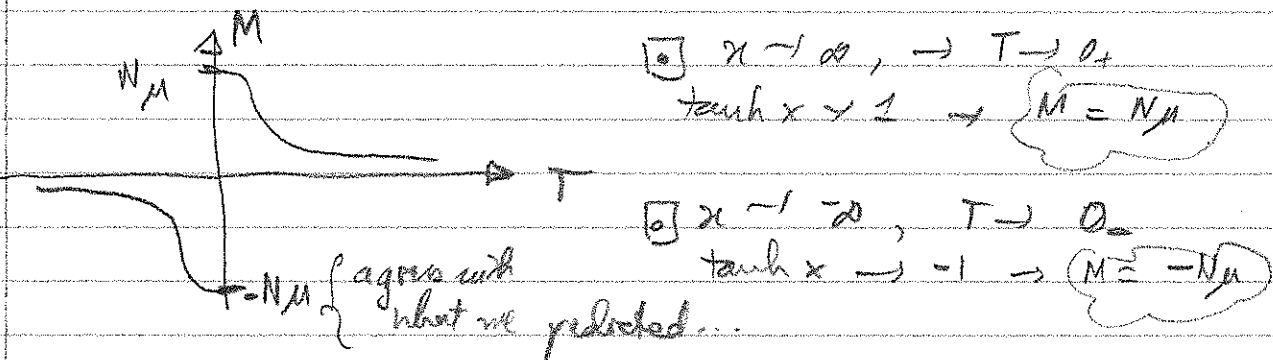 M
Nμ
T
-Nμ
agrees with
what we predicted...
⊡ x → ∞, → T → 0₊
tanh x → 1 → M = Nμ
⊡ x → -∞, T → 0₋
tanh x → -1 → M = -Nμ